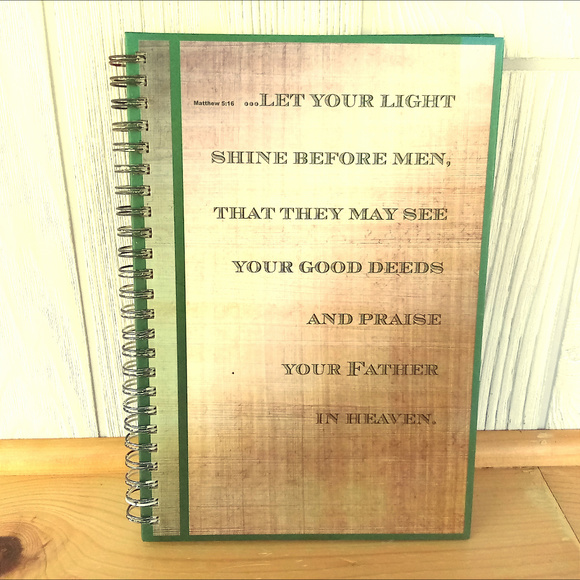 Matthew 5:16 ...LET YOUR LIGHT
SHINE BEFORE MEN,
THAT THEY MAY SEE
YOUR GOOD DEEDS
AND PRAISE
YOUR FATHER
IN HEAVEN.